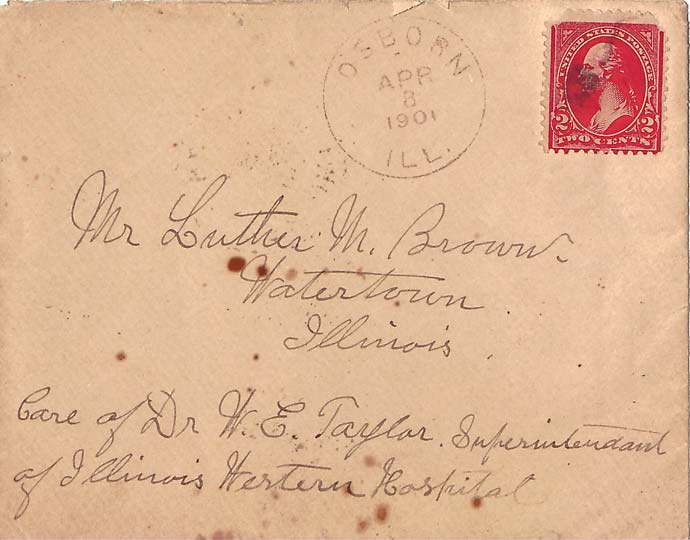 OSBORN
APR
8
1901
ILL.
UNITED STATES POSTAGE
2 2
TWO CENTS
Mr Luther M. Brown.
Watertown
Illinois.
Care of Dr W. E. Taylor. Superintendant
of Illinois Western Hospital